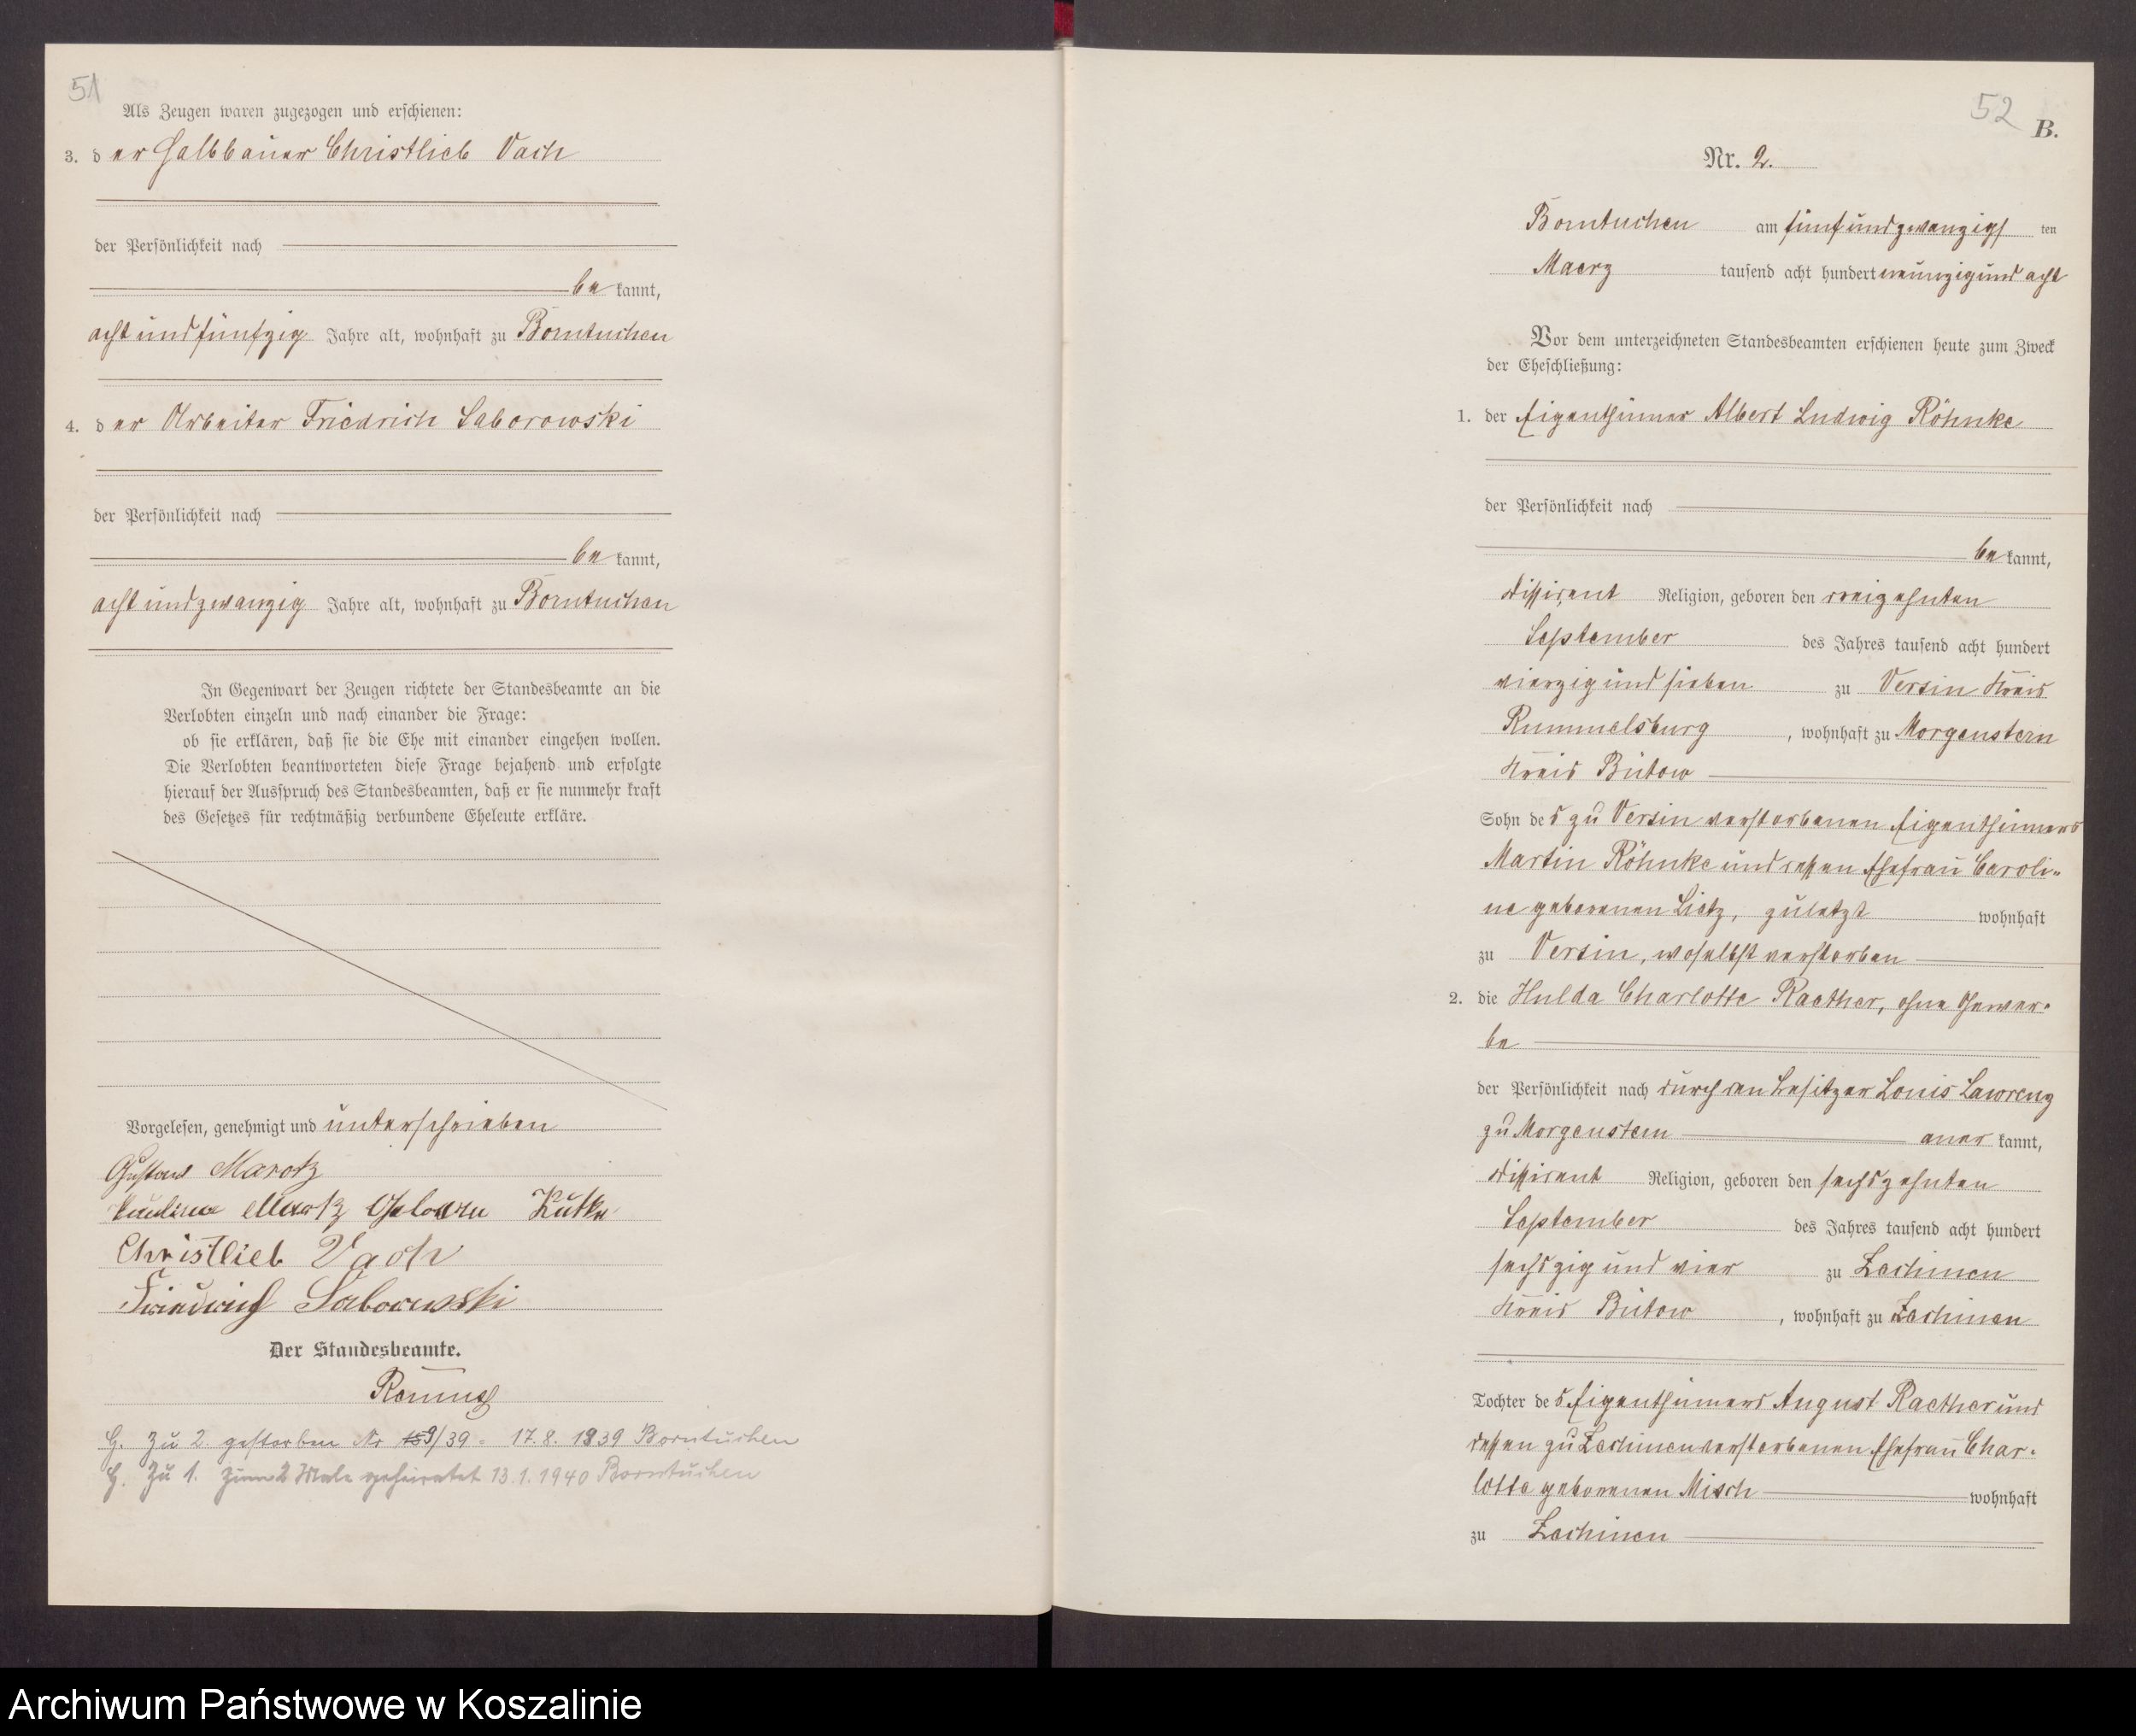 51
Als Zeugen waren zugezogen und erschienen:
3. der Halbbauer Christlieb Vach
der Persönlichkeit nach
be kannt,
acht und fünfzig Jahre alt, wohnhaft zu Borntuchen
4. der Arbeiter Friedrich Saborowski
der Persönlichkeit nach
be kannt,
acht und zwanzig Jahre alt, wohnhaft zu Borntuchen
In Gegenwart der Zeugen richtete der Standesbeamte an die
Verlobten einzeln und nach einander die Frage:
ob sie erklären, daß sie die Ehe mit einander eingehen wollen.
Die Verlobten beantworteten diese Frage bejahend und erfolgte
hierauf der Ausspruch des Standesbeamten, daß er sie nunmehr kraft
des Gesetzes für rechtmäßig verbundene Eheleute erkläre.
Vorgelesen, genehmigt und unterschrieben
Gustav Marotz
Pauline Marotz Geboren Kutke
Christlieb Vach
Friedrich Saborowski
Der Standesbeamte.
G. Zu 2 gestorben Nr 9/39 - 17.8.1939 Borntuchen
H. Zu 1. zum 2 Male geheiratet 13.1.1940 Borntuchen
52
B.
Nr. 2.
Borntuchen am fünf und zwanzigsten
Maerz tausend acht hundert neunzig und acht
Vor dem unterzeichneten Standesbeamten erschienen heute zum Zweck
der Eheschließung:
1. der Eigenthümer Albert Ludwig Röhnke
der Persönlichkeit nach
be kannt,
dissident Religion, geboren den dreizehnten
September des Jahres tausend acht hundert
vierzig und sieben zu Versin Kreis
Rummelsburg, wohnhaft zu Morgenstern
Kreis Bütow
Sohn des zu Versin verstorbenen Eigenthümers
Martin Röhnke und dessen Ehefrau Caroli-
ne geborenen Lietz, zuletzt wohnhaft
zu Versin, woselbst verstorben
2. die Hulda Charlotte Raether, ohne Gewer-
be
der Persönlichkeit nach durch den Besitzer Louis Lawrenz
zu Morgenstern aner kannt,
dissident Religion, geboren den sechszehnten
September des Jahres tausend acht hundert
sechszig und vier zu Zechinen
Kreis Bütow, wohnhaft zu Zechinen
Tochter des Eigenthümers August Raether und
dessen zu Zechinen verstorbenen Ehefrau Char-
lotte geborenen Misch wohnhaft
zu Zechinen
Archiwum Państwowe w Koszalinie